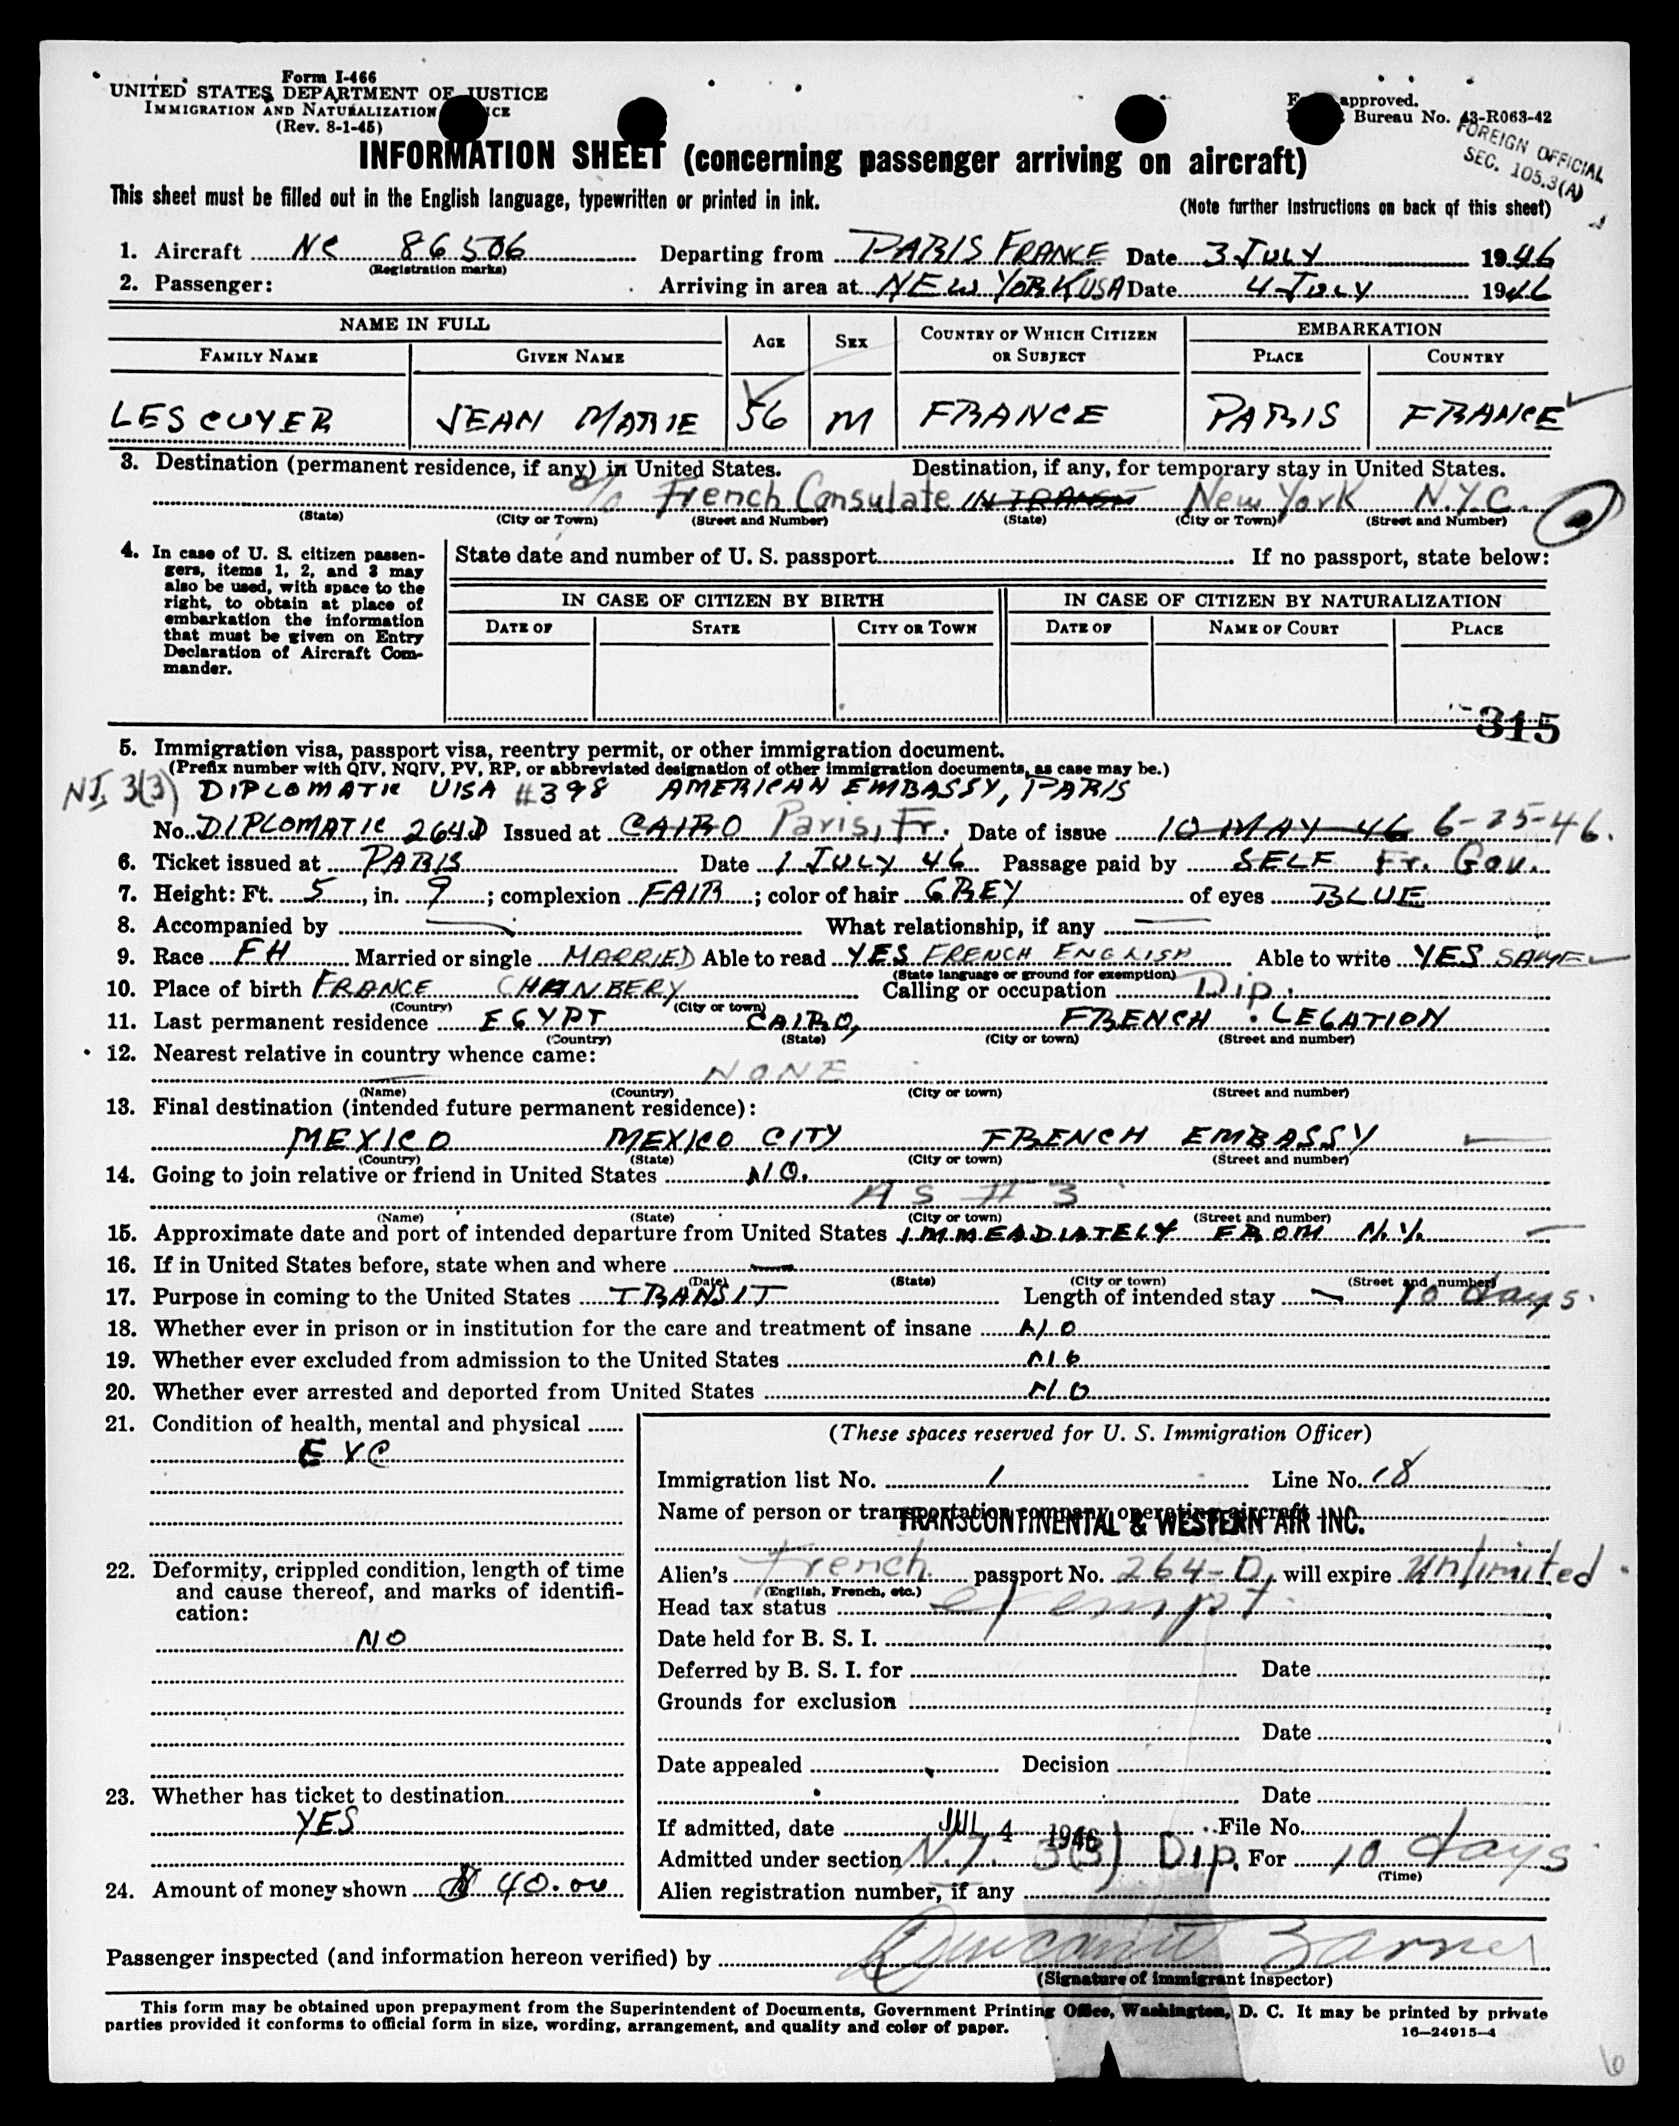 Form I-466
UNITED STATES DEPARTMENT OF JUSTICE
IMMIGRATION AND NATURALIZATION
(Rev. 8-1-45)
approved.
Bureau No. 43-R063-42
FOREIGN OFFICIAL
SEC. 105.3(A)
INFORMATION SHEET (concerning passenger arriving on aircraft)
This sheet must be filled out in the English language, typewritten or printed in ink.
(Note further instructions on back of this sheet)
1. Aircraft NC 86506 Departing from PARIS FRANCE Date 3 JULY 1946
(Registration marks)
2. Passenger: Arriving in area at NEW YORK USA Date 4 JULY 1946
NAME IN FULL AGE SEX COUNTRY OF WHICH CITIZEN OR SUBJECT EMBARKATION
FAMILY NAME GIVEN NAME PLACE COUNTRY
LESCUYER JEAN MARIE 56 M FRANCE PARIS FRANCE
3. Destination (permanent residence, if any) in United States. Destination, if any, for temporary stay in United States.
c/o French Consulate IN TRANSIT New York N.Y.C.
(State) (City or Town) (Street and Number) (State) (City or Town) (Street and Number)
4. In case of U. S. citizen passen-
gers, items 1, 2, and 3 may
also be used, with space to the
right, to obtain at place of
embarkation the information
that must be given on Entry
Declaration of Aircraft Com-
mander.
State date and number of U. S. passport If no passport, state below:
IN CASE OF CITIZEN BY BIRTH IN CASE OF CITIZEN BY NATURALIZATION
DATE OF STATE CITY OR TOWN DATE OF NAME OF COURT PLACE
315
5. Immigration visa, passport visa, reentry permit, or other immigration document.
(Prefix number with QIV, NQIV, PV, RP, or abbreviated designation of other immigration documents, as case may be.)
NI 3(3) DIPLOMATIC VISA #398 AMERICAN EMBASSY, PARIS
No. DIPLOMATIC 264D Issued at CAIRO Paris, Fr. Date of issue 10 MAY 46 6-25-46.
6. Ticket issued at PARIS Date 1 JULY 46 Passage paid by SELF Fr. Gov.
7. Height: Ft. 5, in. 9; complexion FAIR; color of hair GREY of eyes BLUE
8. Accompanied by What relationship, if any
9. Race FH Married or single MARRIED Able to read YES FRENCH ENGLISH Able to write YES SAME
(State language or ground for exemption)
10. Place of birth FRANCE CHANBERY Calling or occupation Dip.
(Country) (City or town)
11. Last permanent residence EGYPT CAIRO, FRENCH LEGATION
(Country) (State) (City or town) (Street and number)
12. Nearest relative in country whence came:
NONE
(Name) (Country) (City or town) (Street and number)
13. Final destination (intended future permanent residence):
MEXICO MEXICO CITY FRENCH EMBASSY
(Country) (State) (City or town) (Street and number)
14. Going to join relative or friend in United States NO.
AS #3
(Name) (State) (City or town) (Street and number)
15. Approximate date and port of intended departure from United States IMMEADIATELY FROM N.Y.
16. If in United States before, state when and where
(Date) (State) (City or town) (Street and number)
17. Purpose in coming to the United States TRANSIT Length of intended stay 10 days.
18. Whether ever in prison or in institution for the care and treatment of insane NO
19. Whether ever excluded from admission to the United States NO
20. Whether ever arrested and deported from United States NO
21. Condition of health, mental and physical
EXC
22. Deformity, crippled condition, length of time
and cause thereof, and marks of identifi-
cation:
NO
23. Whether has ticket to destination
YES
24. Amount of money shown $ 40.00
(These spaces reserved for U. S. Immigration Officer)
Immigration list No. 1 Line No. 18
Name of person or transportation company operating aircraft
TRANSCONTINENTAL & WESTERN AIR INC.
Alien's French passport No. 264-D, will expire unlimited
(English, French, etc.)
Head tax status exempt
Date held for B. S. I.
Deferred by B. S. I. for Date
Grounds for exclusion
Date
Date appealed Decision
Date
If admitted, date JUL 4 1946 File No.
Admitted under section N.I. 3(3) Dip. For 10 days
(Time)
Alien registration number, if any
Passenger inspected (and information hereon verified) by
(Signature of immigrant inspector)
This form may be obtained upon prepayment from the Superintendent of Documents, Government Printing Office, Washington, D. C. It may be printed by private
parties provided it conforms to official form in size, wording, arrangement, and quality and color of paper.
16—24915-4
6